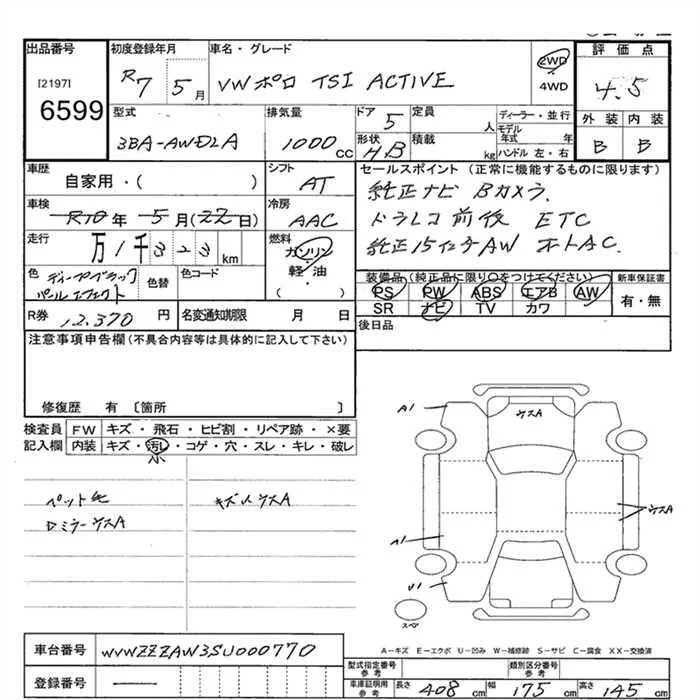 出品番号
[2197]
6599
初度登録年月
R7 5月
車名・グレード
VW ポロ TSI ACTIVE
2WD
4WD
評価点
4.5
型式
3BA-AWDLA
排気量
1000 CC
ドア 5
形状 H.B
定員 人
積載 kg
ディーラー・並行
モデル年式 年
ハンドル 左・右
外装 内装
B B
車歴
自家用・( )
シフト
AT
車検
R10年 5月(22日)
冷房
AAC
走行
万 1千 3 2 3 km
燃料
ガソリン
軽・油
( )
色 ディープブラックパールエフェクト
色替
色コード
R券 12,370 円
名変通知期限 月 日
セールスポイント(正常に機能するものに限ります)
純正ナビ Bカメラ.
ドラレコ前後 ETC
純正15インチAW オートAC.
装備品(純正品に限り○をつけてください)
PS PW ABS エアB AW
SR ナビ TV カワ
新車保証書
有・無
後日品
注意事項申告欄(不具合内容等は具体的に記入して下さい)
修復歴 有 〔箇所 〕
検査員記入欄
FW キズ・飛石・ヒビ割・リペア跡・×要
内装 キズ・汚レ・コゲ・穴・スレ・キレ・破レ
小
キズ小ウスA
ウスA
A1
ウスA
A1
スペ
A-キズ E-エクボ U-凹み W-補修跡 S-サビ C-腐食 XX-交換済
車台番号 WVWZZZAW3SU000770
登録番号 —
型式指定番号参考
類別区分番号
車庫証明用参考 長さ 408 cm 幅 175 cm 高さ 145 cm